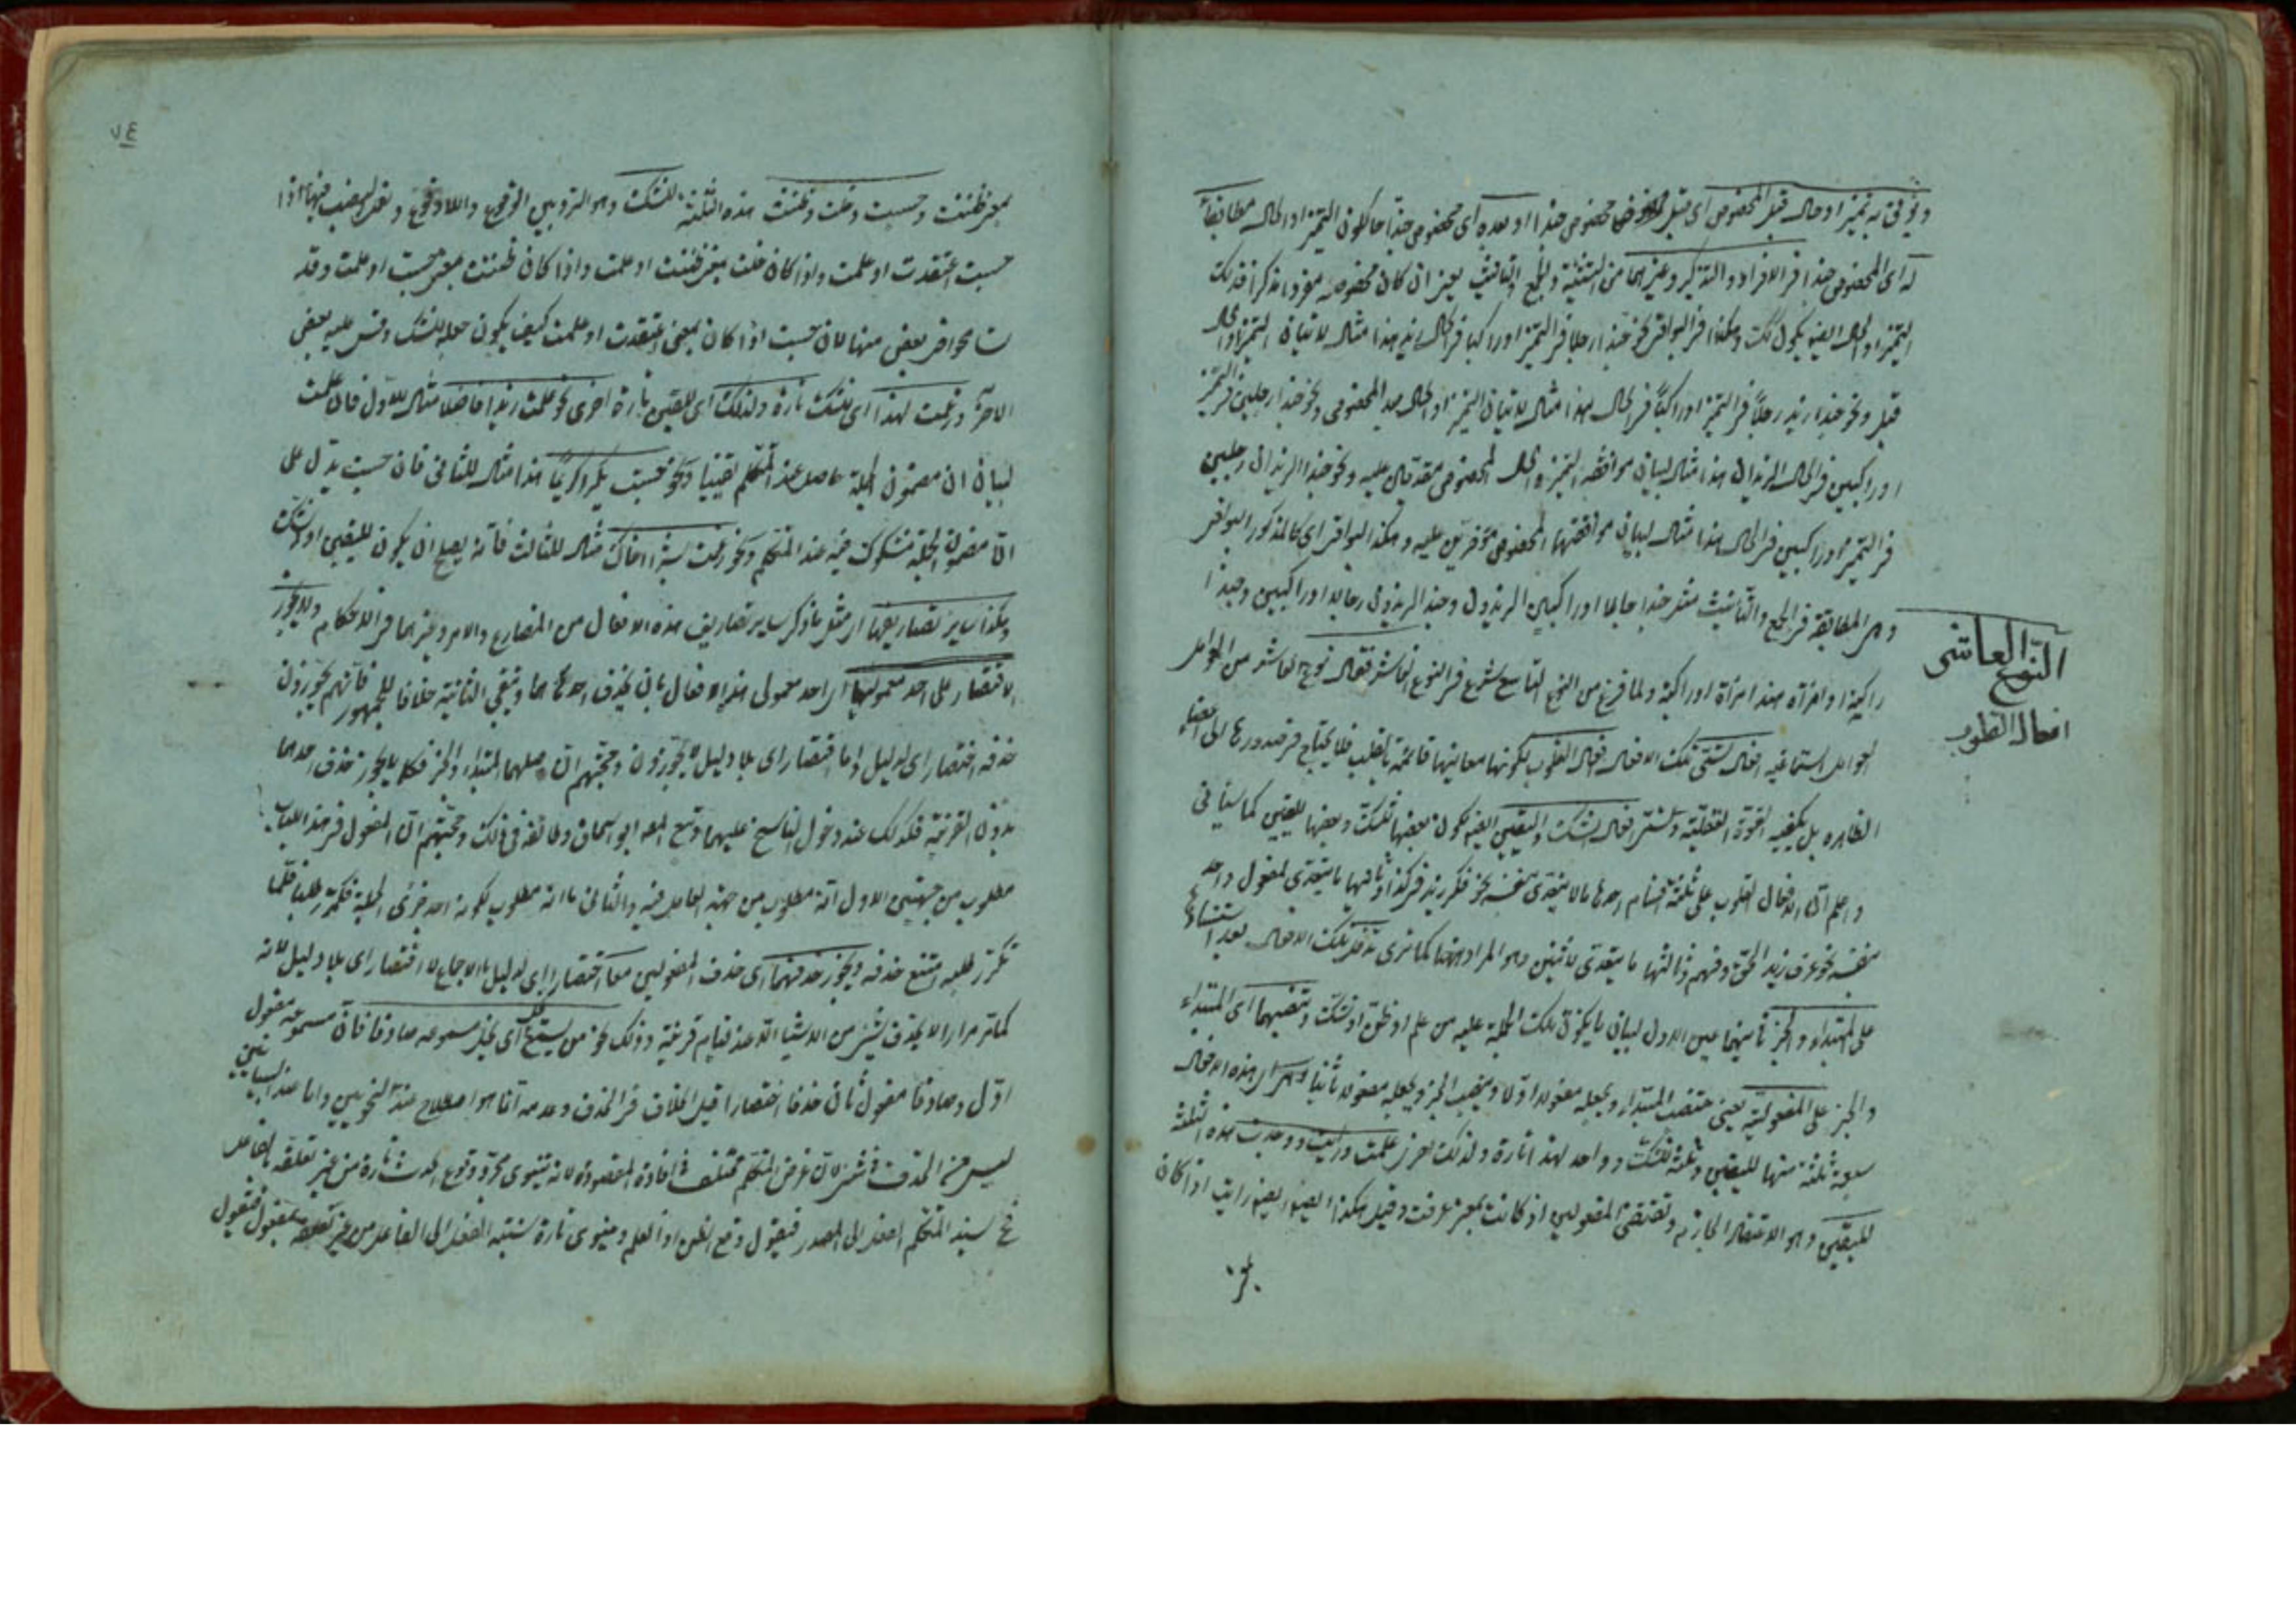 ويؤتى به تميز او حال قبل المخصوص اى قبل مخصوص حبذا او بعده اى مخصوص حبذا حا كلون التميز او الحال مطابقا
له اى المخصوص حبذا فى الافراد والتذكير وغيرهما من التثنية والجمع والتانيث يعنى ان كان مخصوصه مفردا مذكرا فذلك
التميز او الحال ايضا يكون كك وهكذا فى البواقى نحو حبذا رجلا فى التميز او راكبا فى الحال زيد هذا مثال لاتيان التميز والحال
قبل ونحو حبذا زيد رجلا فى التميز او راكبا فى الحال هذا مثال لاتيان التميز او الحال بعد المخصوص ونحو حبذا رجلين فى التميز
او راكبين فى الحال الزيدان هذا مثال لبيان موافقة التميز والحال المخصوص متقدمان عليه ونحو حبذا الزيدان رجلين
فى التميز او راكبين فى الحال هذا مثال لبيان موافقتهما المخصوص مؤخرين عليه وهكذا البواقى اى كالمذكور البواقى
وهى المطابقة فى الجمع والتانيث مثل حبذا رجالا او راكبين الزيدون وحبذا الزيدون رجالا او راكبين وحبذا
راكبة او امراة هند امراة او راكبة ولما فرغ من النوع التاسع شرع فى النوع العاشر فقال نوع العاشر من العوامل
النوع العاشر
افعال القلوب
العوامل السماعية افعال تسمى تلك الافعال افعال القلوب لكونها معانيها قائمة بالقلب فلا يحتاج فى صدورها الى اعضاء
الظاهرة بل يكفيه القوة العقلية وتسمى افعال الشك واليقين ايضا لكون بعضها للشك وبعضها لليقين كما سيأتى
واعلم ان افعال القلوب على ثلثة اقسام احدها ما لا يتعدى بنفسه نحو فكر زيد فى كذا وثانيها ما يتعدى لمفعول واحد
بنفسه نحو عرف زيد الحق وفهم وثالثها ما يتعدى لاثنين وهو المراد ههنا كما ترى تدخل تلك الافعال بعد استيفاء
على المبتداء والخبر ثانيهما عين الاول لبيان ما يكون تلك الجملة عليه من علم او ظن او شك وتنصبهما اى المبتداء
والخبر على المفعولية يعنى تنصب المبتداء ويجعله مفعولا اولا وينصب الخبر ويجعله مفعولا ثانيا وهى اى هذه الافعال
سبعة ثلثة منها لليقين وثلثة للشك وواحد لهذا تارة ولذلك اخرى علمت ورايت ووجدت هذه الثلثة
لليقين وهو الاعتقاد الجازم وتقتضى المفعولين اذ كانت بمعنى عرفت وقيل هكذا ايضا رايت اذا كان
٧٤
بمعنى ظننت وحسبت وخلت وظننت هذه الثلثة للشك وهو التردد بين الوقوع واللاوقوع
حسبت اعتقدت او علمت واذا كان خلت بمعنى ظننت او علمت واذا كان ظننت بمعنى حسبت او علمت وقد
بعض منها لان حسبت اذا كان بمعنى اعتقدت او علمت كيف يكون جعله للشك وقس عليه بعض
الاخر وزعمت لهذا اى للشك تارة ولذلك اى لليقين تارة اخرى نحو علمت زيدا فاضلا مثال للاول فان علمت
لبيان ان مضمون الجملة حاصل عند المتكلم يقينا ونحو حسبت بكرا كريما هذا مثال للثانى فان حسبت يدل على
ان مضمون الجملة مشكوك فيه عند المتكلم ونحو زعمت بشرا اخاك مثال للثالث فانه يصلح ان يكون لليقين او للشك
وهكذا ساير تصاريفها اى مثل ما ذكر ساير تصاريف هذه الافعال من المضارع والامر وغيرهما فى الاحكام ولا يجوز
الاقتصار على احد مفعوليها اى احد معمولى هذه الافعال بان يحذف احدهما ويبقى الثانية خلافا للجمهور فانهم يجوزون
حذفه اختصارا اى لدليل واما اقتصارا اى بلا دليل لا يجوزون وحجتهم ان اصلهما المبتداء والخبر فكما لا يجوز حذف احدهما
بدون القرينة فكذلك عند دخول الناسخ عليهما وتبع المصنف ابو اسحاق وطائفة فى ذلك وحجتهم ان المفعول فى هذا الباب
مطلوب من جهتين الاول انه مطلوب من جهة العامل فيه والثانى ما انه مطلوب لكونه احد جزئى الجملة فكرر طلبا فلما
تكرر طلبه امتنع حذفه ويجوز حذفهما اى حذف المفعولين معا اختصارا اى لدليل بالاجماع لا اقتصارا اى بلا دليل لانه
كما تر مرارا لا يحذف شئ من الاشياء الا عند قيام قرينة وذلك نحو من يسمع يخل اى يخل مسموعه صادقا فان مسموعه مفعول
اول وصادقا مفعول ثان حذفا اختصارا قيل الخلاف فى الحذف وعدمه انما هو اصطلاح عند النحويين واما عند البيانيين
ليس من الحذف فى شئ لان غرض المتكلم مختلف فى افادة المقصود لانه ينوى مجرد وقوع الحدث تارة من غير تعلقه بفاعل
فح يسند المتكلم الفعل الى المصدر فيقول وقع الظن او العلم وينوى تارة نسبة الفعل الى الفاعل من غير تعلقه بمفعول فيقول